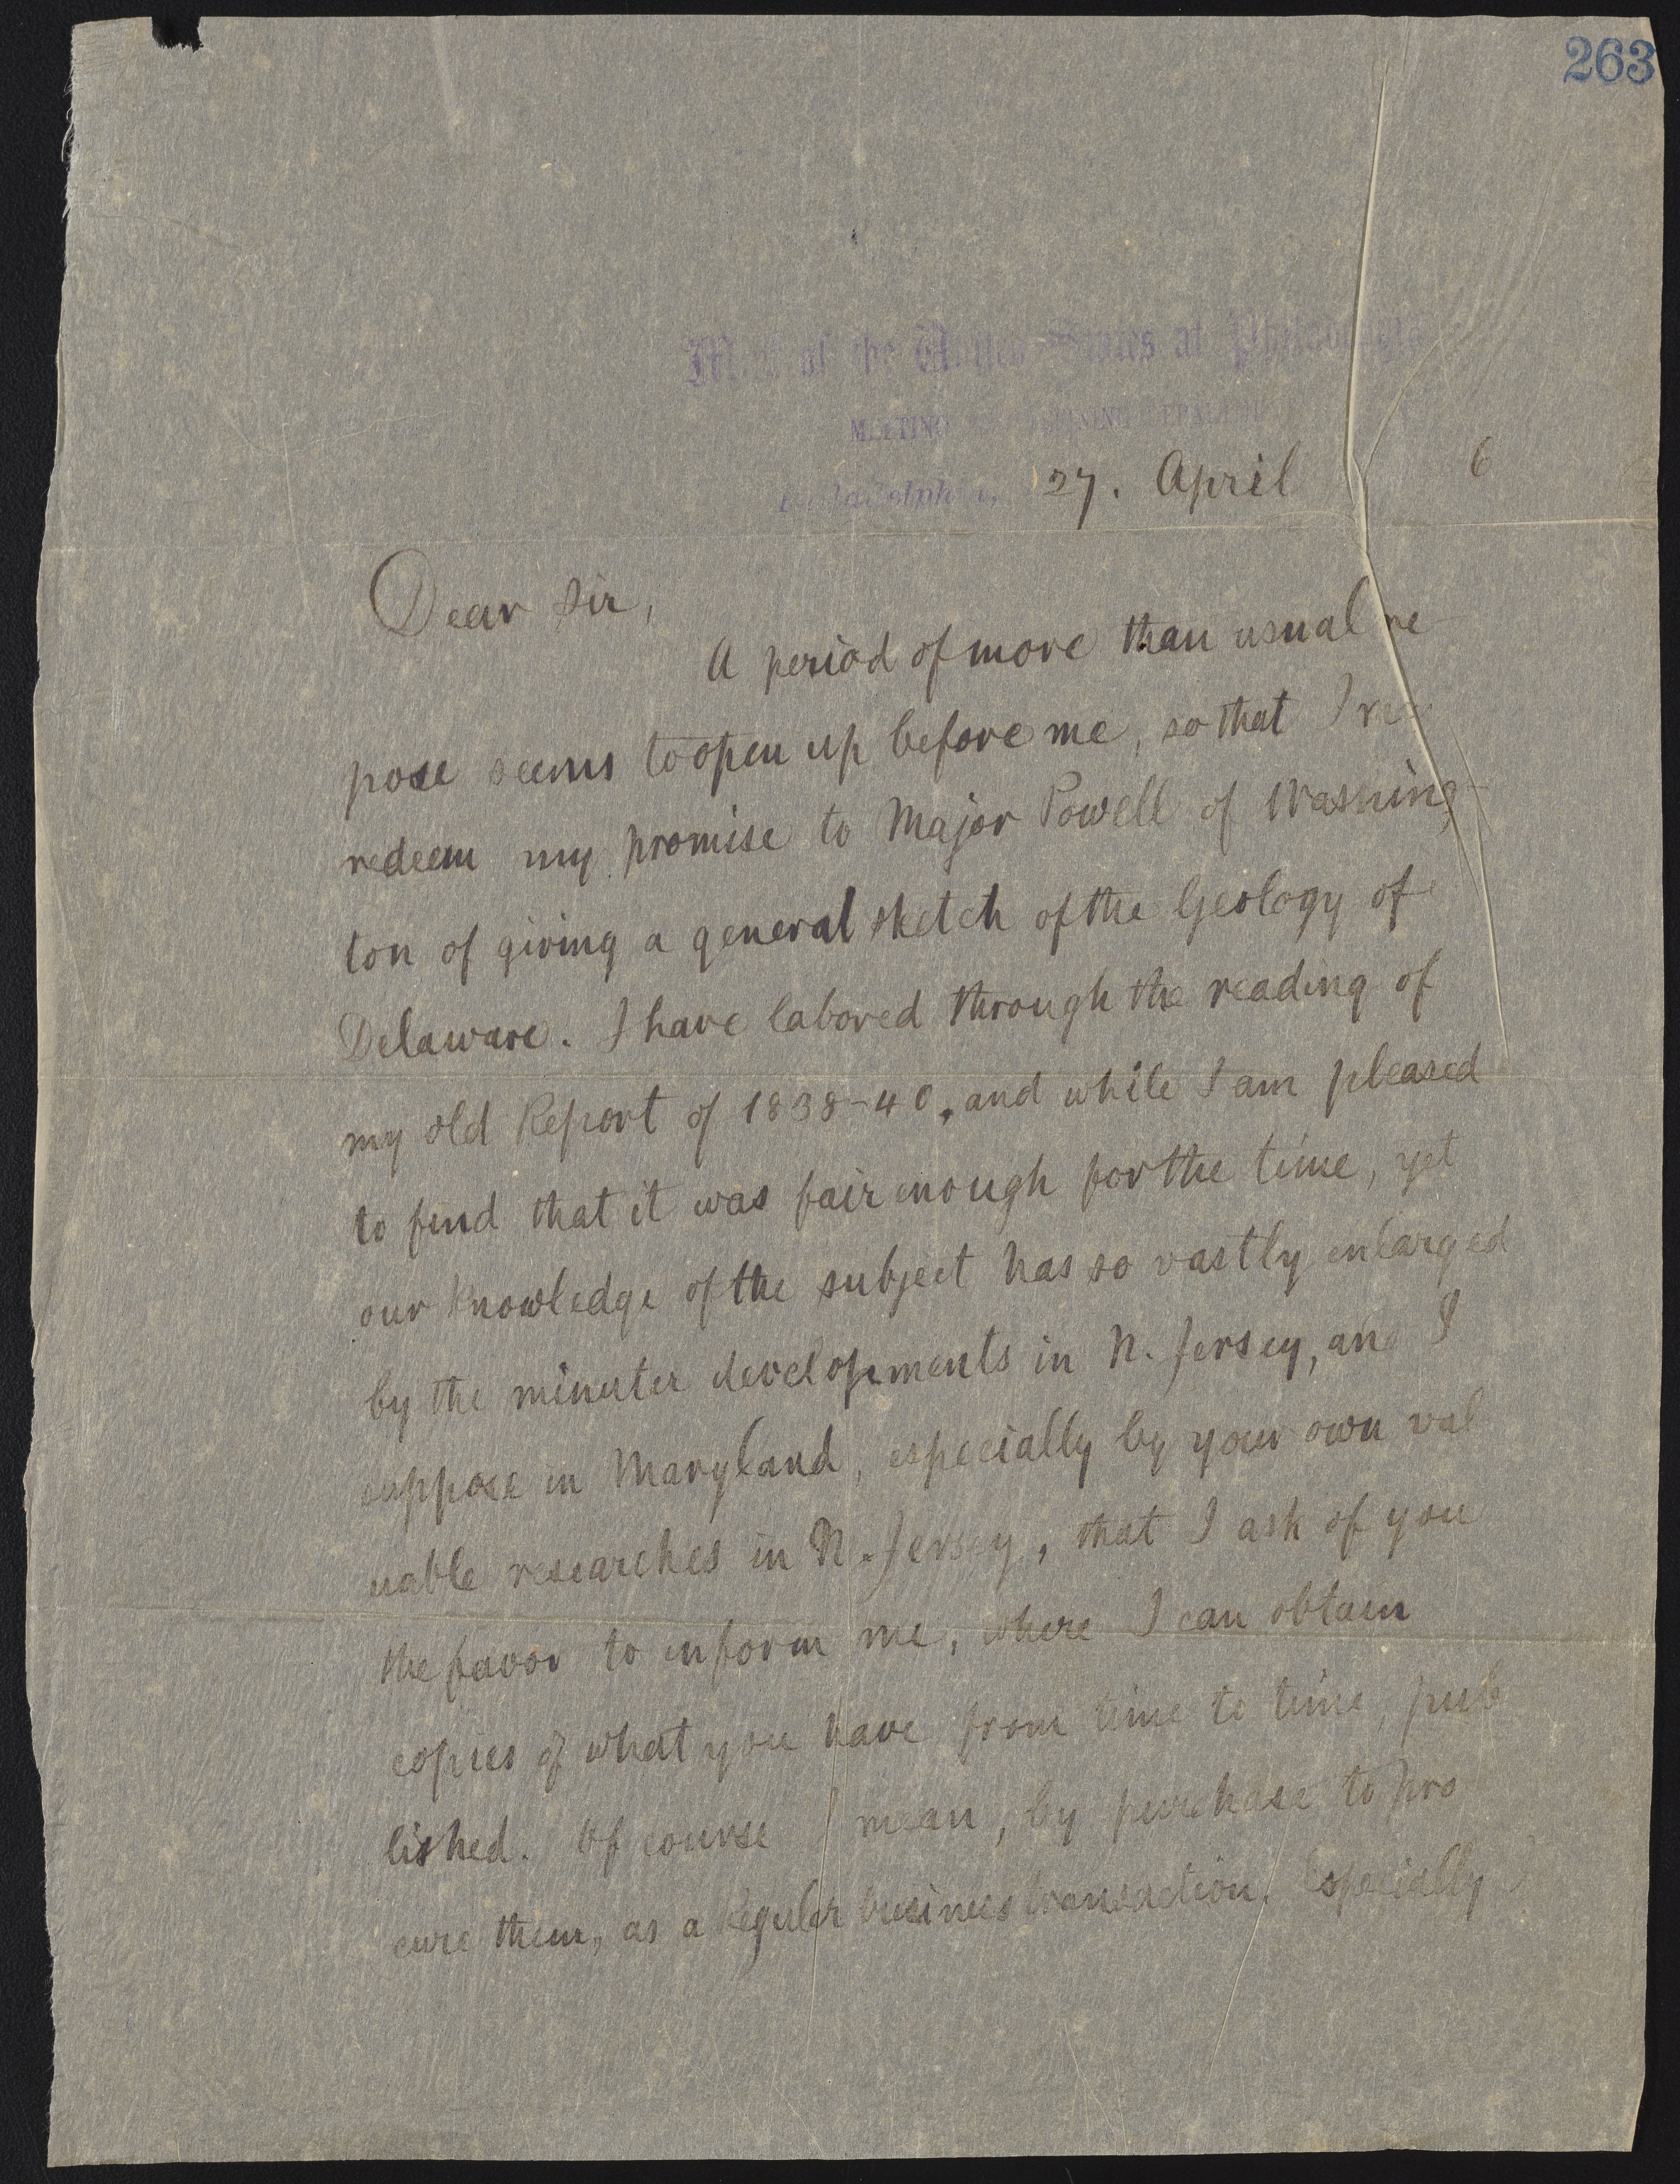 263
Mint of the United States at Philadelphia
MELTING AND REFINING DEPARTMENT
Philadelphia, 27. April 6
Dear Sir,
A period of more than usual re-
pose seems to open up before me, so that I may
redeem my promise to Major Powell of Washing-
ton of giving a general sketch of the Geology of
Delaware. I have labored through the reading of
my old Report of 1838-40, and while I am pleased
to find that it was fair enough for the time, yet
our knowledge of the subject has so vastly enlarged
by the minuter developments in N. Jersey, and I
suppose in Maryland, especially by your own val
uable researches in N. Jersey, that I ask of you
the favor to inform me, where I can obtain
copies of what you have from time to time pub
lished. Of course I mean, by purchase to pro
cure them, as a regular business transaction. Especially